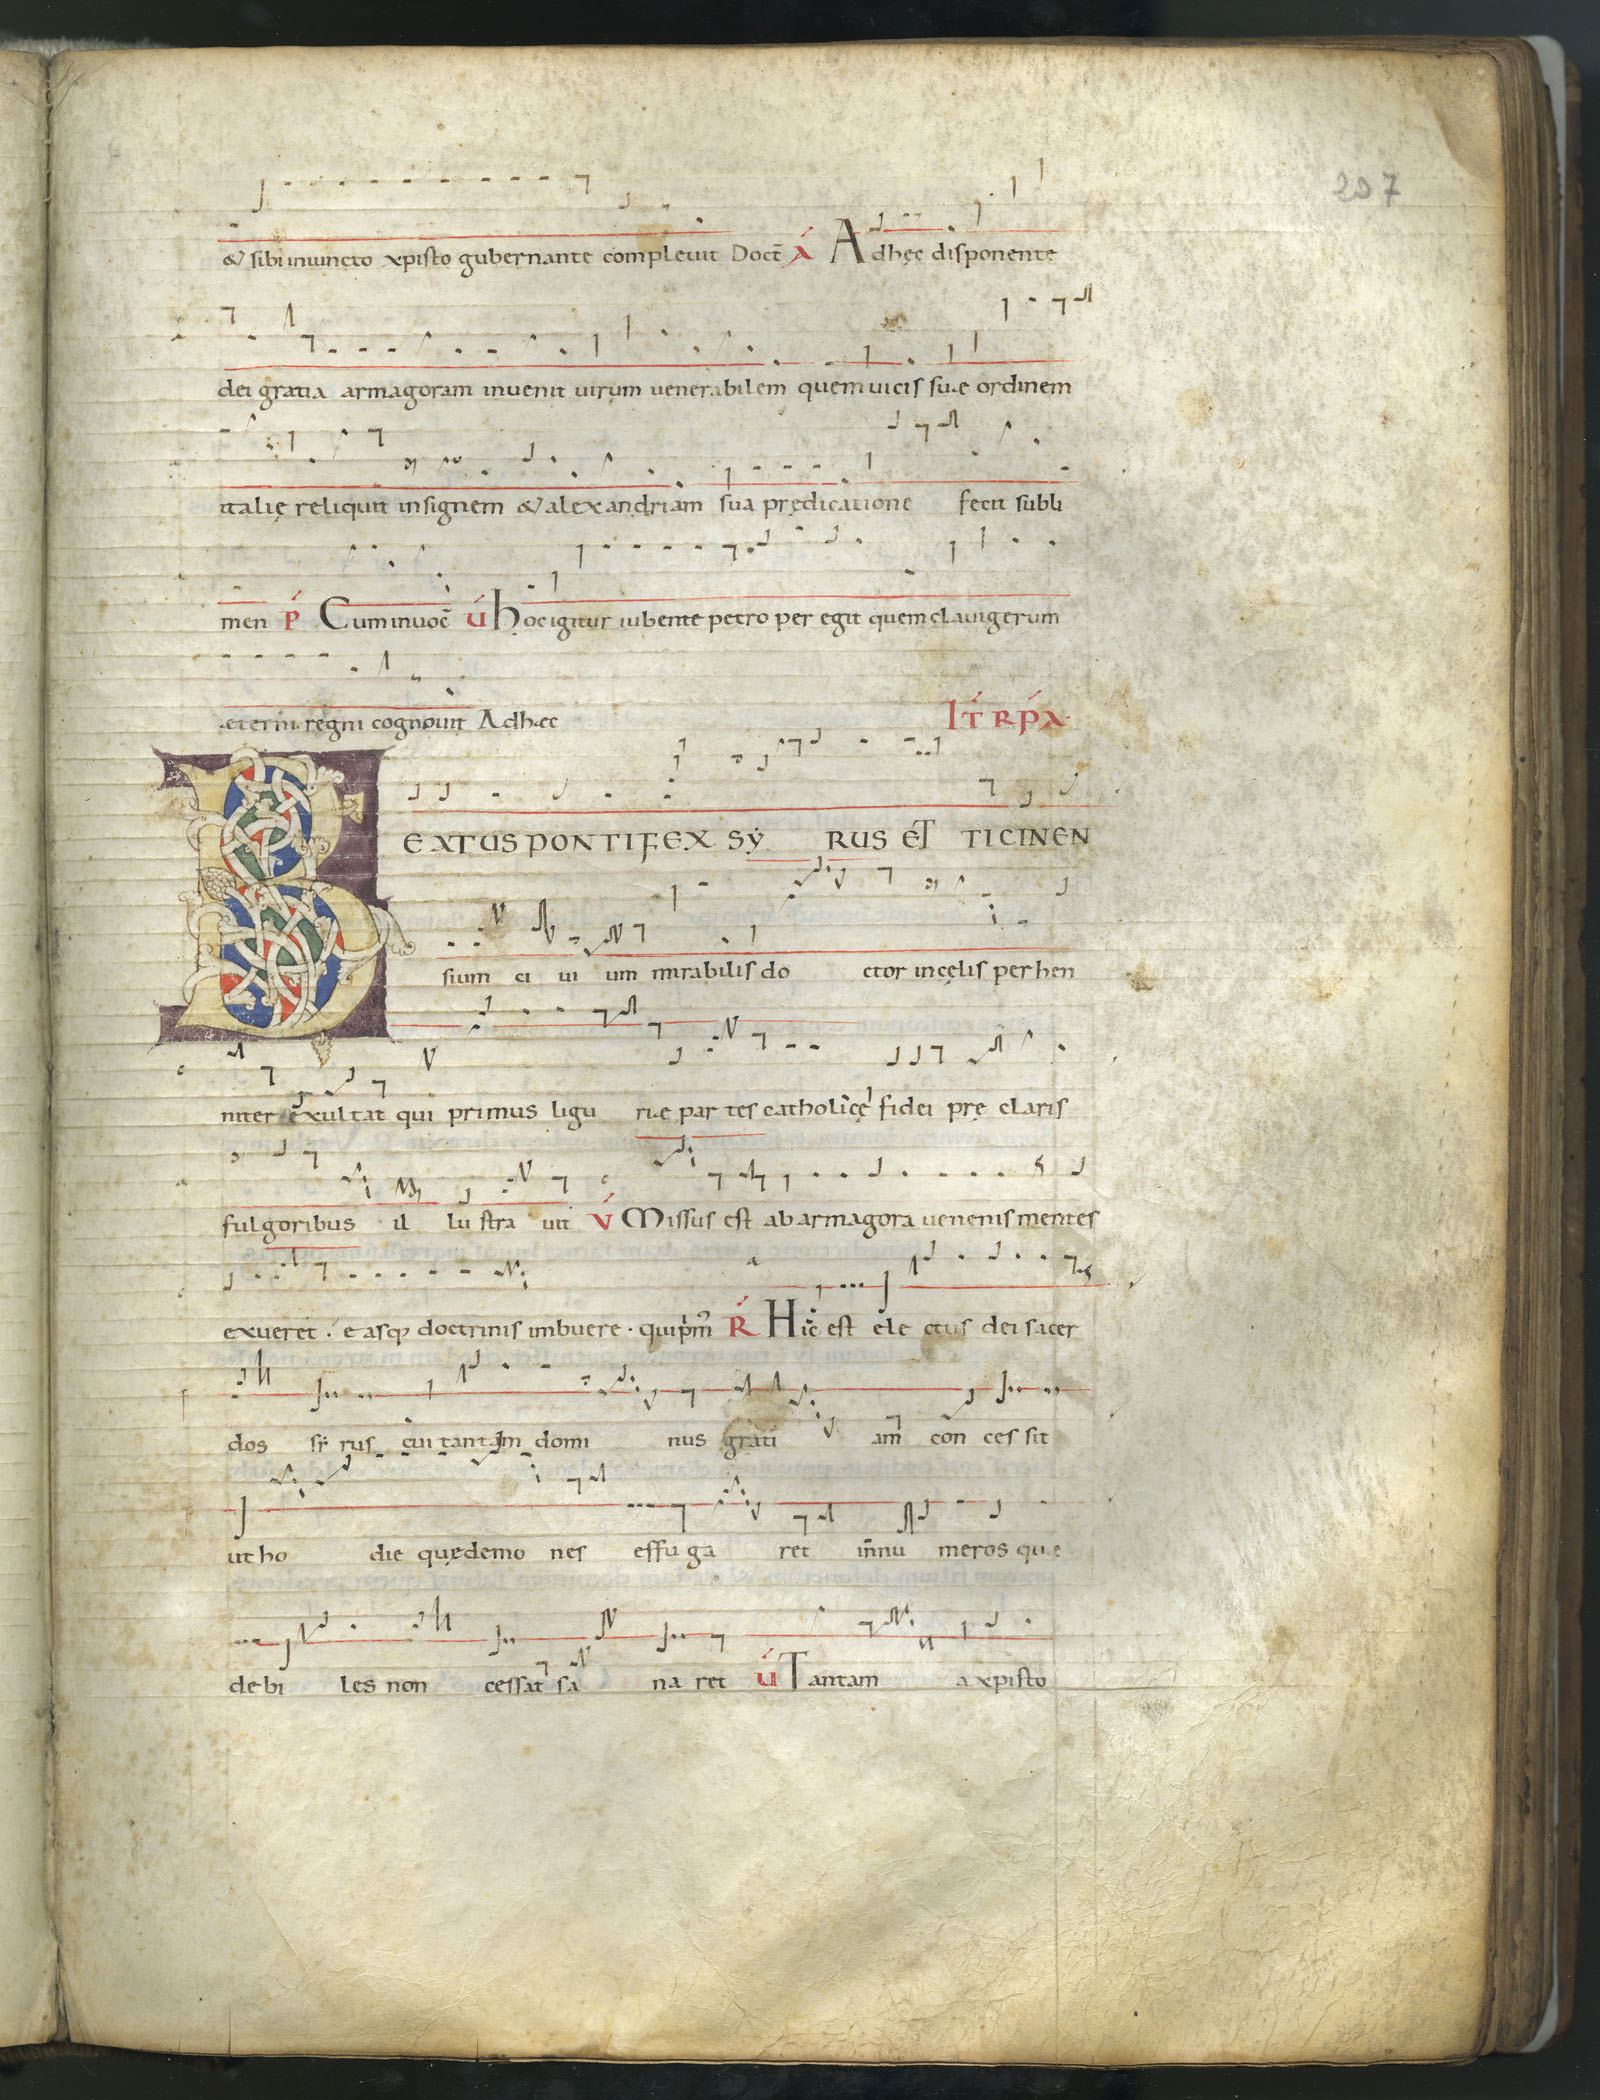 207
& sibi iniuncto xpisto gubernante compleuit Doct̄ A Adhęc disponente
dei gratia armagoram inuenit uirum uenerabilem quem uicis suæ ordinem
italię reliquit insignem & alexandriam sua prędicatione fecit subli
men P Cum inuoc̄ V Hoc igitur iubente petro per egit quem clauigerum
æterni regni cognouit Adhæc IT RPA
BEATUS PONTIFEX SẎ RUS ET TICINEN
sium ci ui um mirabilis do ctor in cęlis per hen
niter exultat qui primus ligu riæ par tes catholicę fidei prę claris
fulgoribus il lu stra uit V Missus est ab armagora uenenis mentes
exueret · easq; doctrinis imbuere · qui pm̄ R Hic est ele ctus dei sacer
dos sẏ rus cui tantam domi nus grati am con ces sit
ut ho die quędemo nes effu ga ret in̄nu meros quæ
debi les non cessat sa na ret V Tantam a xpisto